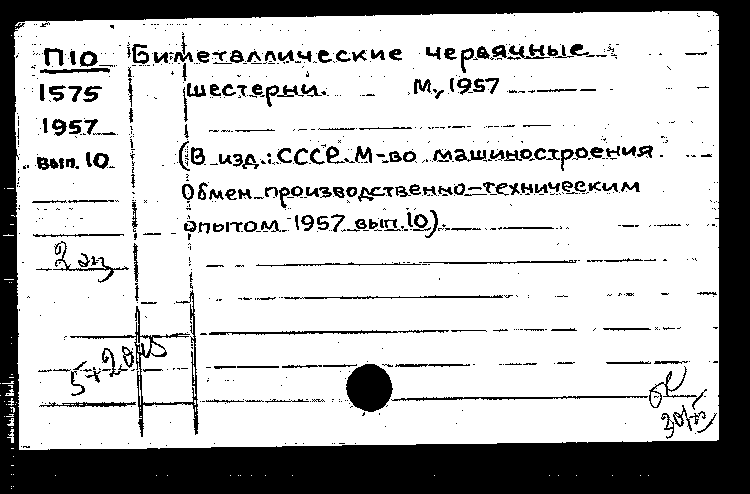 П10 Биметаллические червячные
1575 шестерни. М., 1957
1957
вып. 10 (В изд.: СССР. М-во машиностроения.
Обмен производственно-техническим
опытом 1957 вып. 10).
2 эц